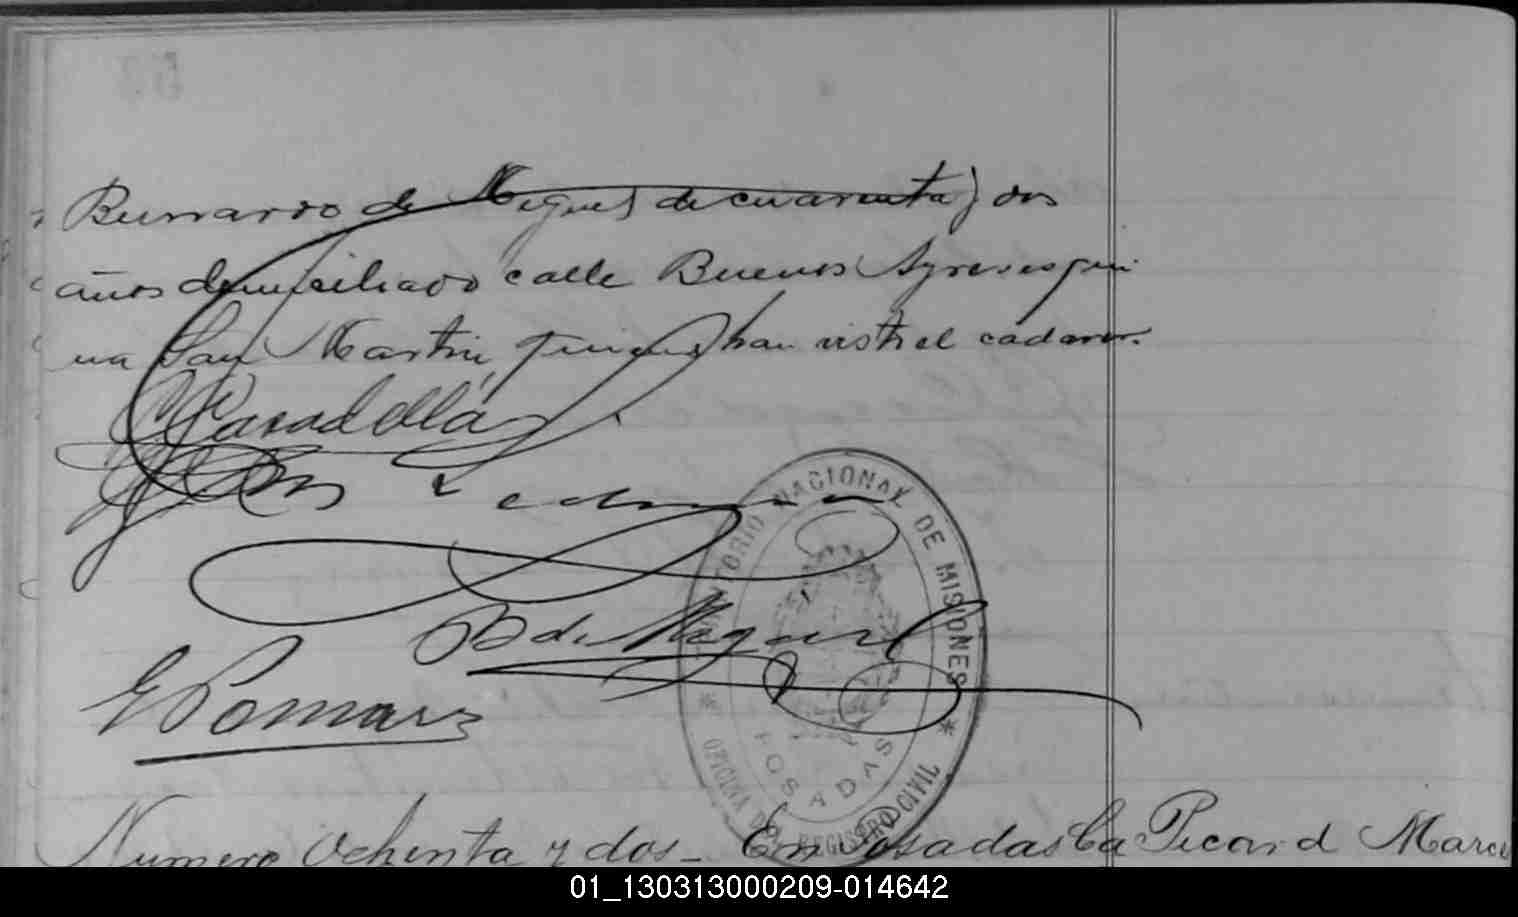 Bernardo de Miguel de cuarenta y dos
años domiciliado calle Buenos Ayres esqui
na San Martin, quienes han visto el cadaver.
B de Miguel
TERRITORIO NACIONAL DE MISIONES
POSADAS
* OFICINA DEL REGISTRO CIVIL *
Numero Ochenta y dos - En Posadas Ca Picard Marce
01_130313000209-014642